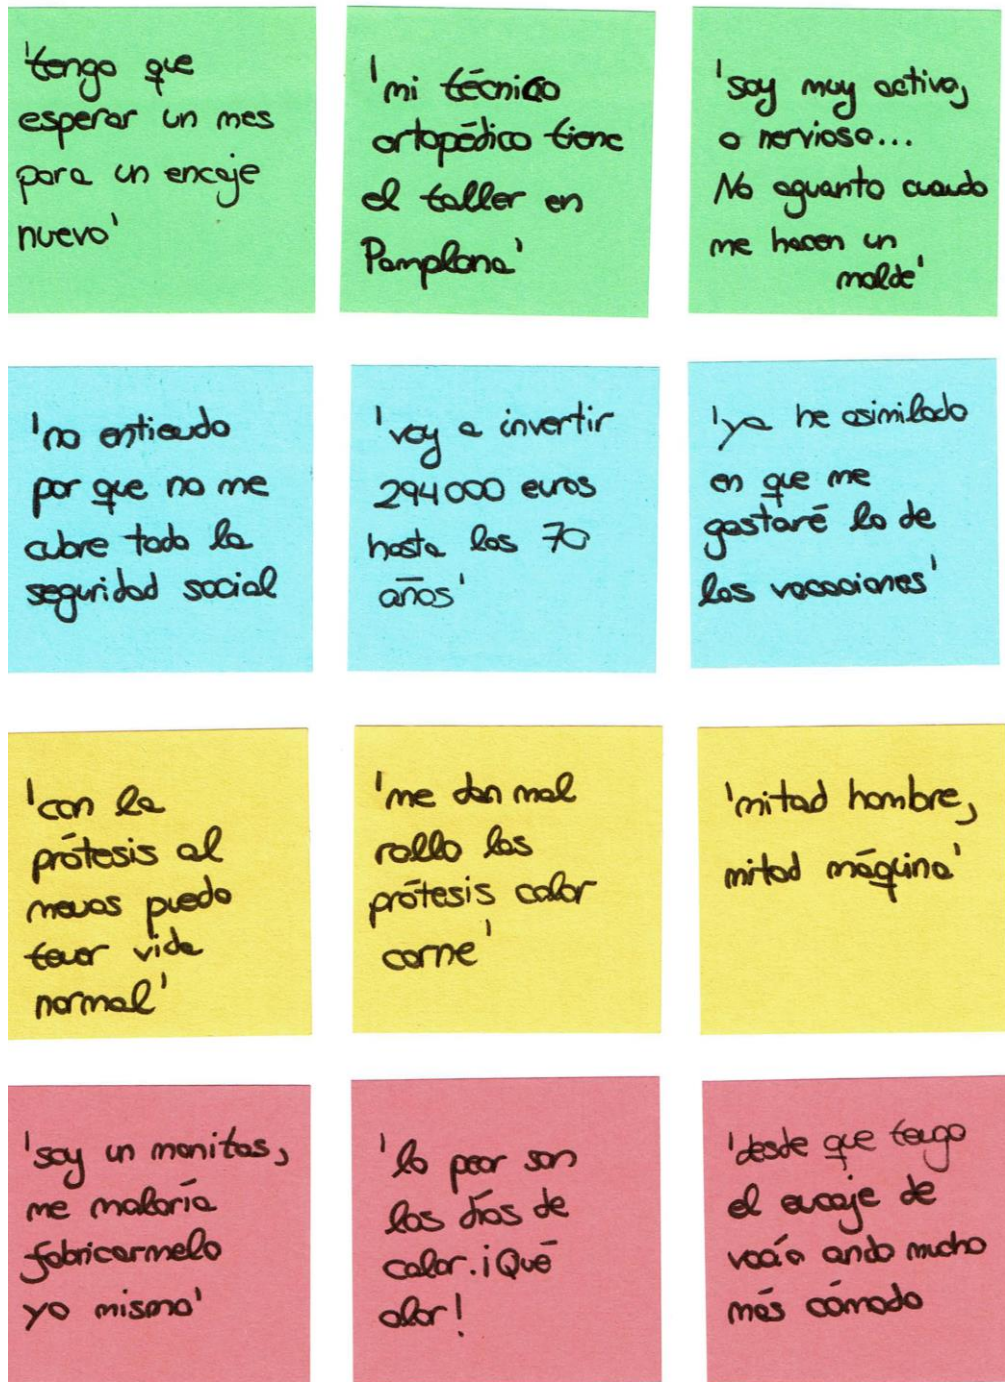 'tengo que
esperar un mes
para un encaje
nuevo'
'mi técnico
ortopédico tiene
el taller en
Pamplona'
'soy muy activo,
o nervioso...
No aguanto cuando
me hacen un
molde'
'no entiendo
por que no me
cubre todo la
seguridad social
'voy a invertir
294000 euros
hasta los 70
años'
'ya he asimilado
en que me
gastaré lo de
las vacaciones'
'con la
prótesis al
menos puedo
tener vida
normal'
'me dan mal
rollo las
prótesis color
carne'
'mitad hombre,
mitad máquina'
'soy un manitas,
me molaría
fabricarmelo
yo mismo'
'lo peor son
los días de
calor. ¡Qué
olor!
'desde que tengo
el encaje de
vacío ando mucho
más cómodo